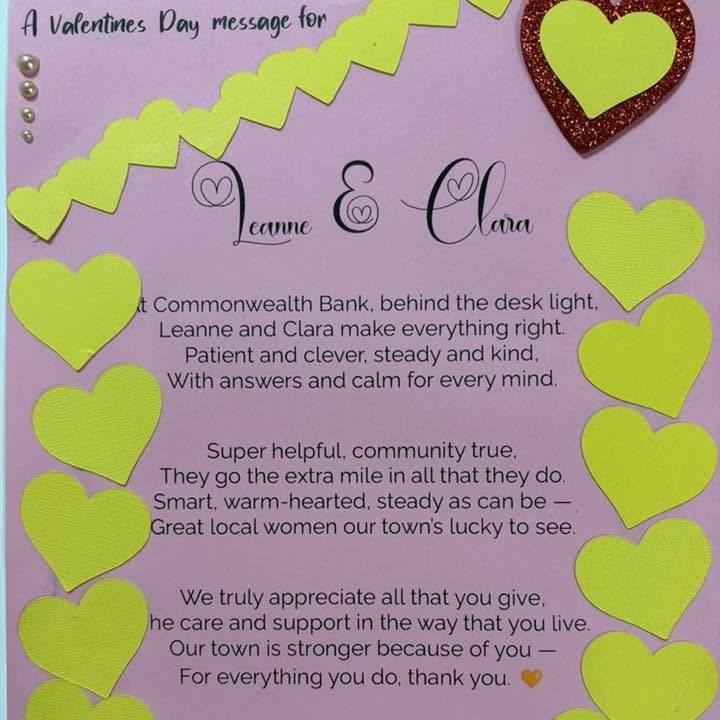 A Valentines Day message for
Leanne & Clara
t Commonwealth Bank, behind the desk light,
Leanne and Clara make everything right.
Patient and clever, steady and kind,
With answers and calm for every mind.
Super helpful, community true,
They go the extra mile in all that they do.
Smart, warm-hearted, steady as can be —
Great local women our town's lucky to see.
We truly appreciate all that you give,
he care and support in the way that you live.
Our town is stronger because of you —
For everything you do, thank you. 🧡